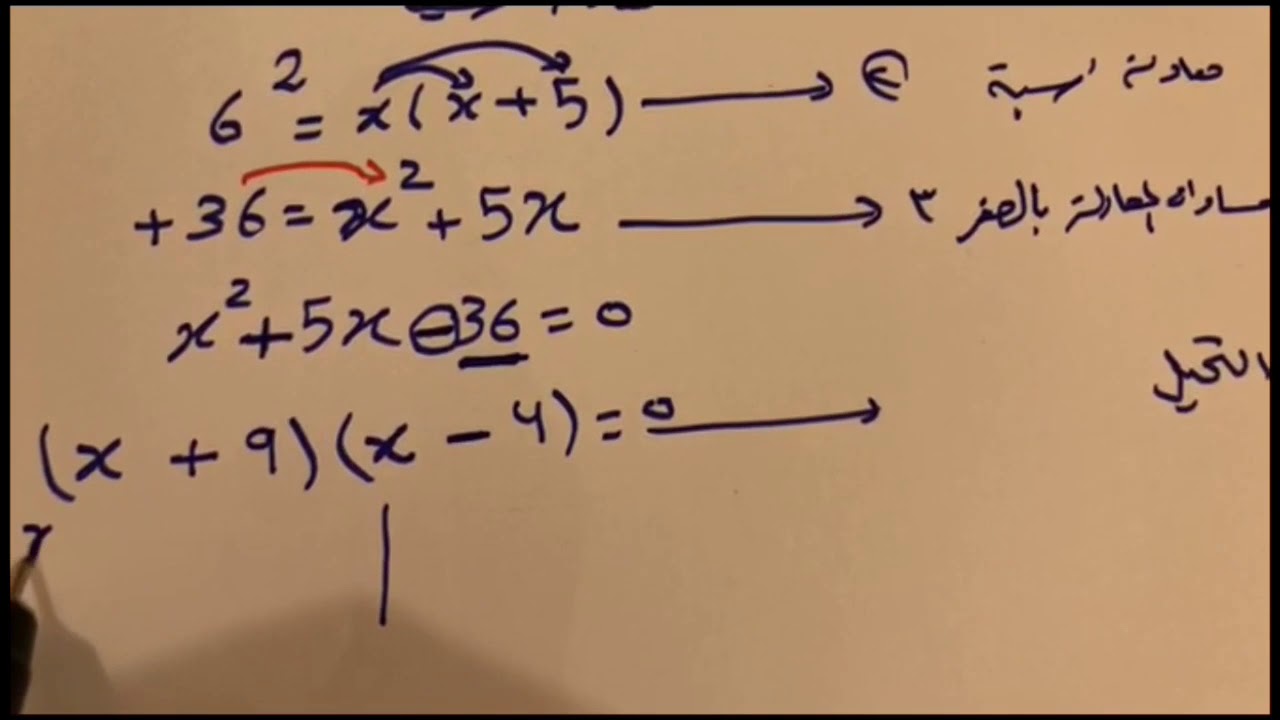 6² = x(x + 5) ⟶ ② معادلة اسية
+36 = x² + 5x ⟶ ٣ مساواة المعادلة بالصفر
x² + 5x - 36 = 0
التحليل
(x + 9)(x - 4) = 0 ⟶
x